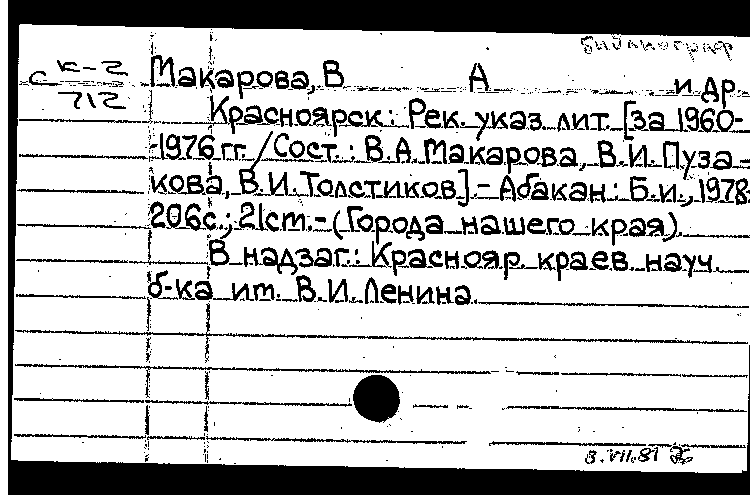 библиограф
с К-2
712
Макарова, В А и др.
Красноярск: Рек. указ. лит. [за 1960-
-1976 гг. / Сост.: В.А. Макарова, В.И. Пуза-
кова, В.И. Толстиков]. - Абакан: Б.и., 1978.
206с.; 21см. - (Города нашего края).
В надзаг.: Краснояр. краев. науч.
б-ка им. В.И. Ленина.
3.VII.81